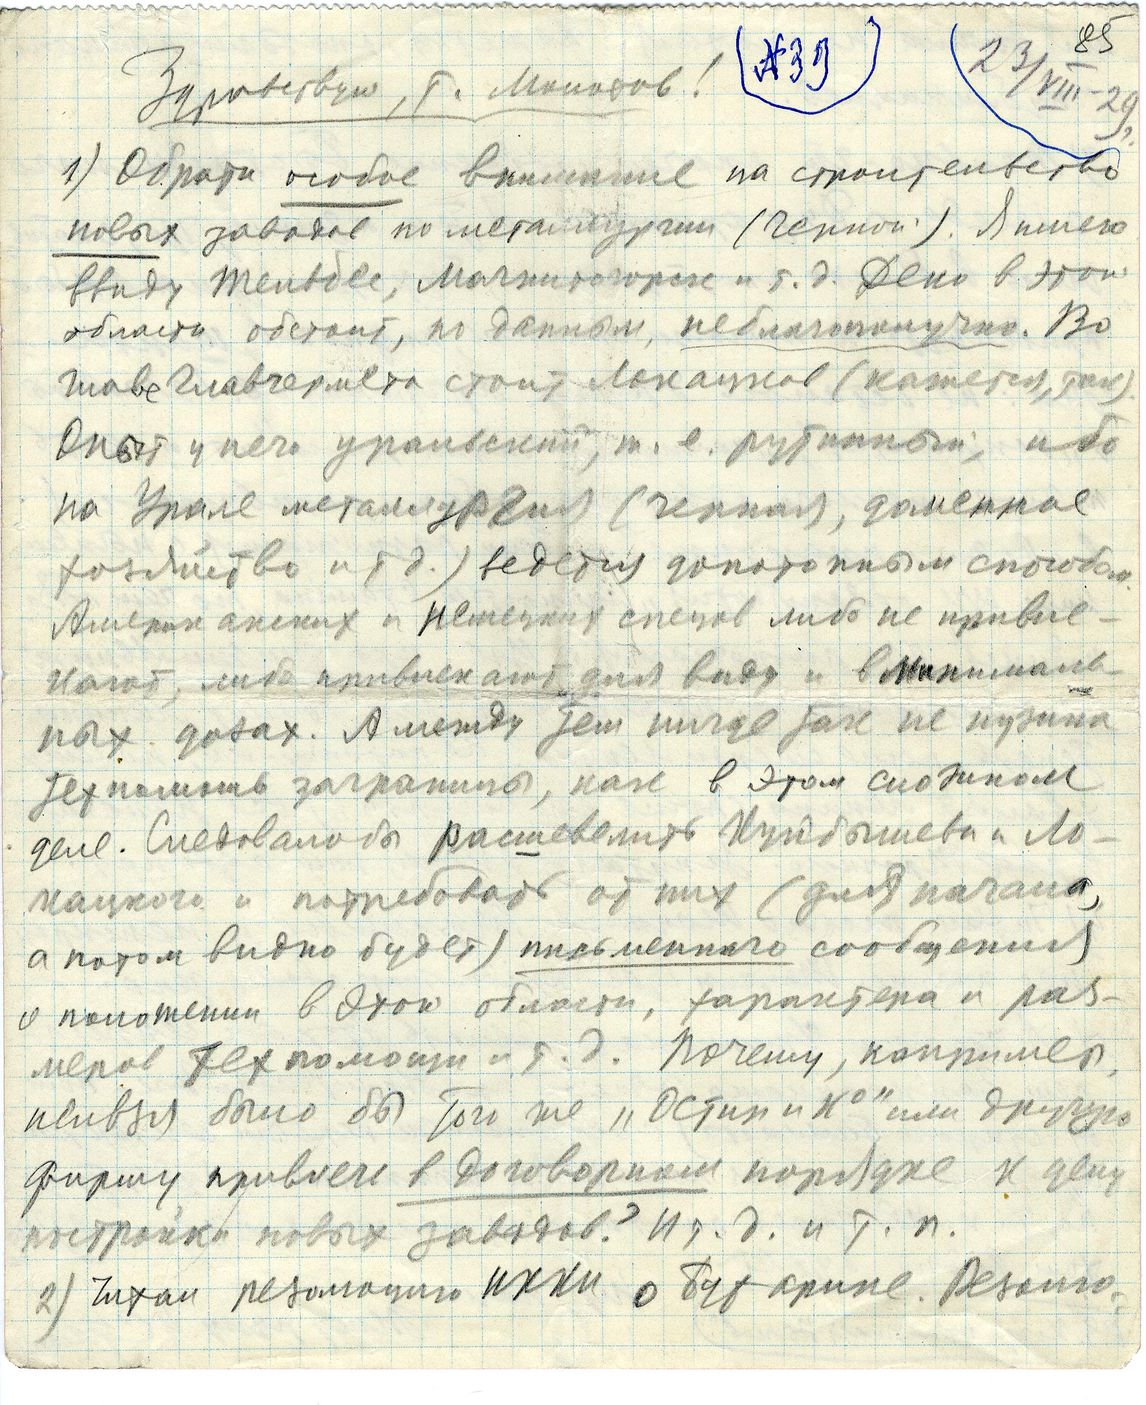 85
№39
23/VIII-29.
Здравствуй, т. Молотов!
1) Обрати особое внимание на строительство
новых заводов по металлургии (черной). Я имею
ввиду Тельбес, Магнитогорск и т.д. Дело в этой
области обстоит, по данным, неблагополучно. Во
главе Главчермета стоит Локацков (кажется, так).
Опыт у него уральский, т.е. рутинный, ибо
на Урале металлургия (черная, доменное
хозяйство и т.д.) ведется допотопным способом.
Американских и немецких спецов либо не привле-
кают, либо привлекают для виду и в минималь-
ных дозах. А между тем нигде так не нужна
техпомощь заграницы, как в этом сложном
деле. Следовало бы расшевелить Куйбышева и Ло-
кацкого и потребовать от них (для начала,
а потом видно будет) письменного сообщения
о положении в этой области, характера и раз-
меров техпомощи и т.д. Почему, например,
нельзя было бы того же „Остин и К⁰" или другую
фирму привлечь в договорном порядке к делу
постройки новых заводов? И т.д. и т.п.
2) Читал резолюцию ИККИ о Бухарине. Резолю-